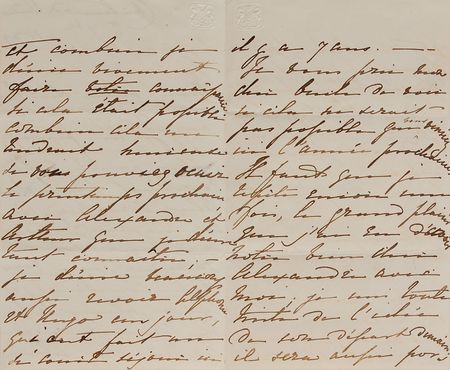 et combien je
désire vivement
faire votre connais
si cela était possible
combien cela me
rendrait heureuse
si vous pouviez venir
le printemps prochain
avec Alexandre et
Arthur que je désire
tant connaitre. —
je désire
aussi revoir
et Hugo un jour,
qui ont fait un
si court séjour ici
il y a 7 ans. —
Je vous prie ma
chère de voir
si cela ne serait
pas possible que
ici l'année prochaine
Il faut que je
vous dise encore une
fois, le grand plaisir
que j'ai eu
notre bien cher
Alexandre avec
moi, je suis toute
triste de l'idée
de son départ demain
il sera aussi